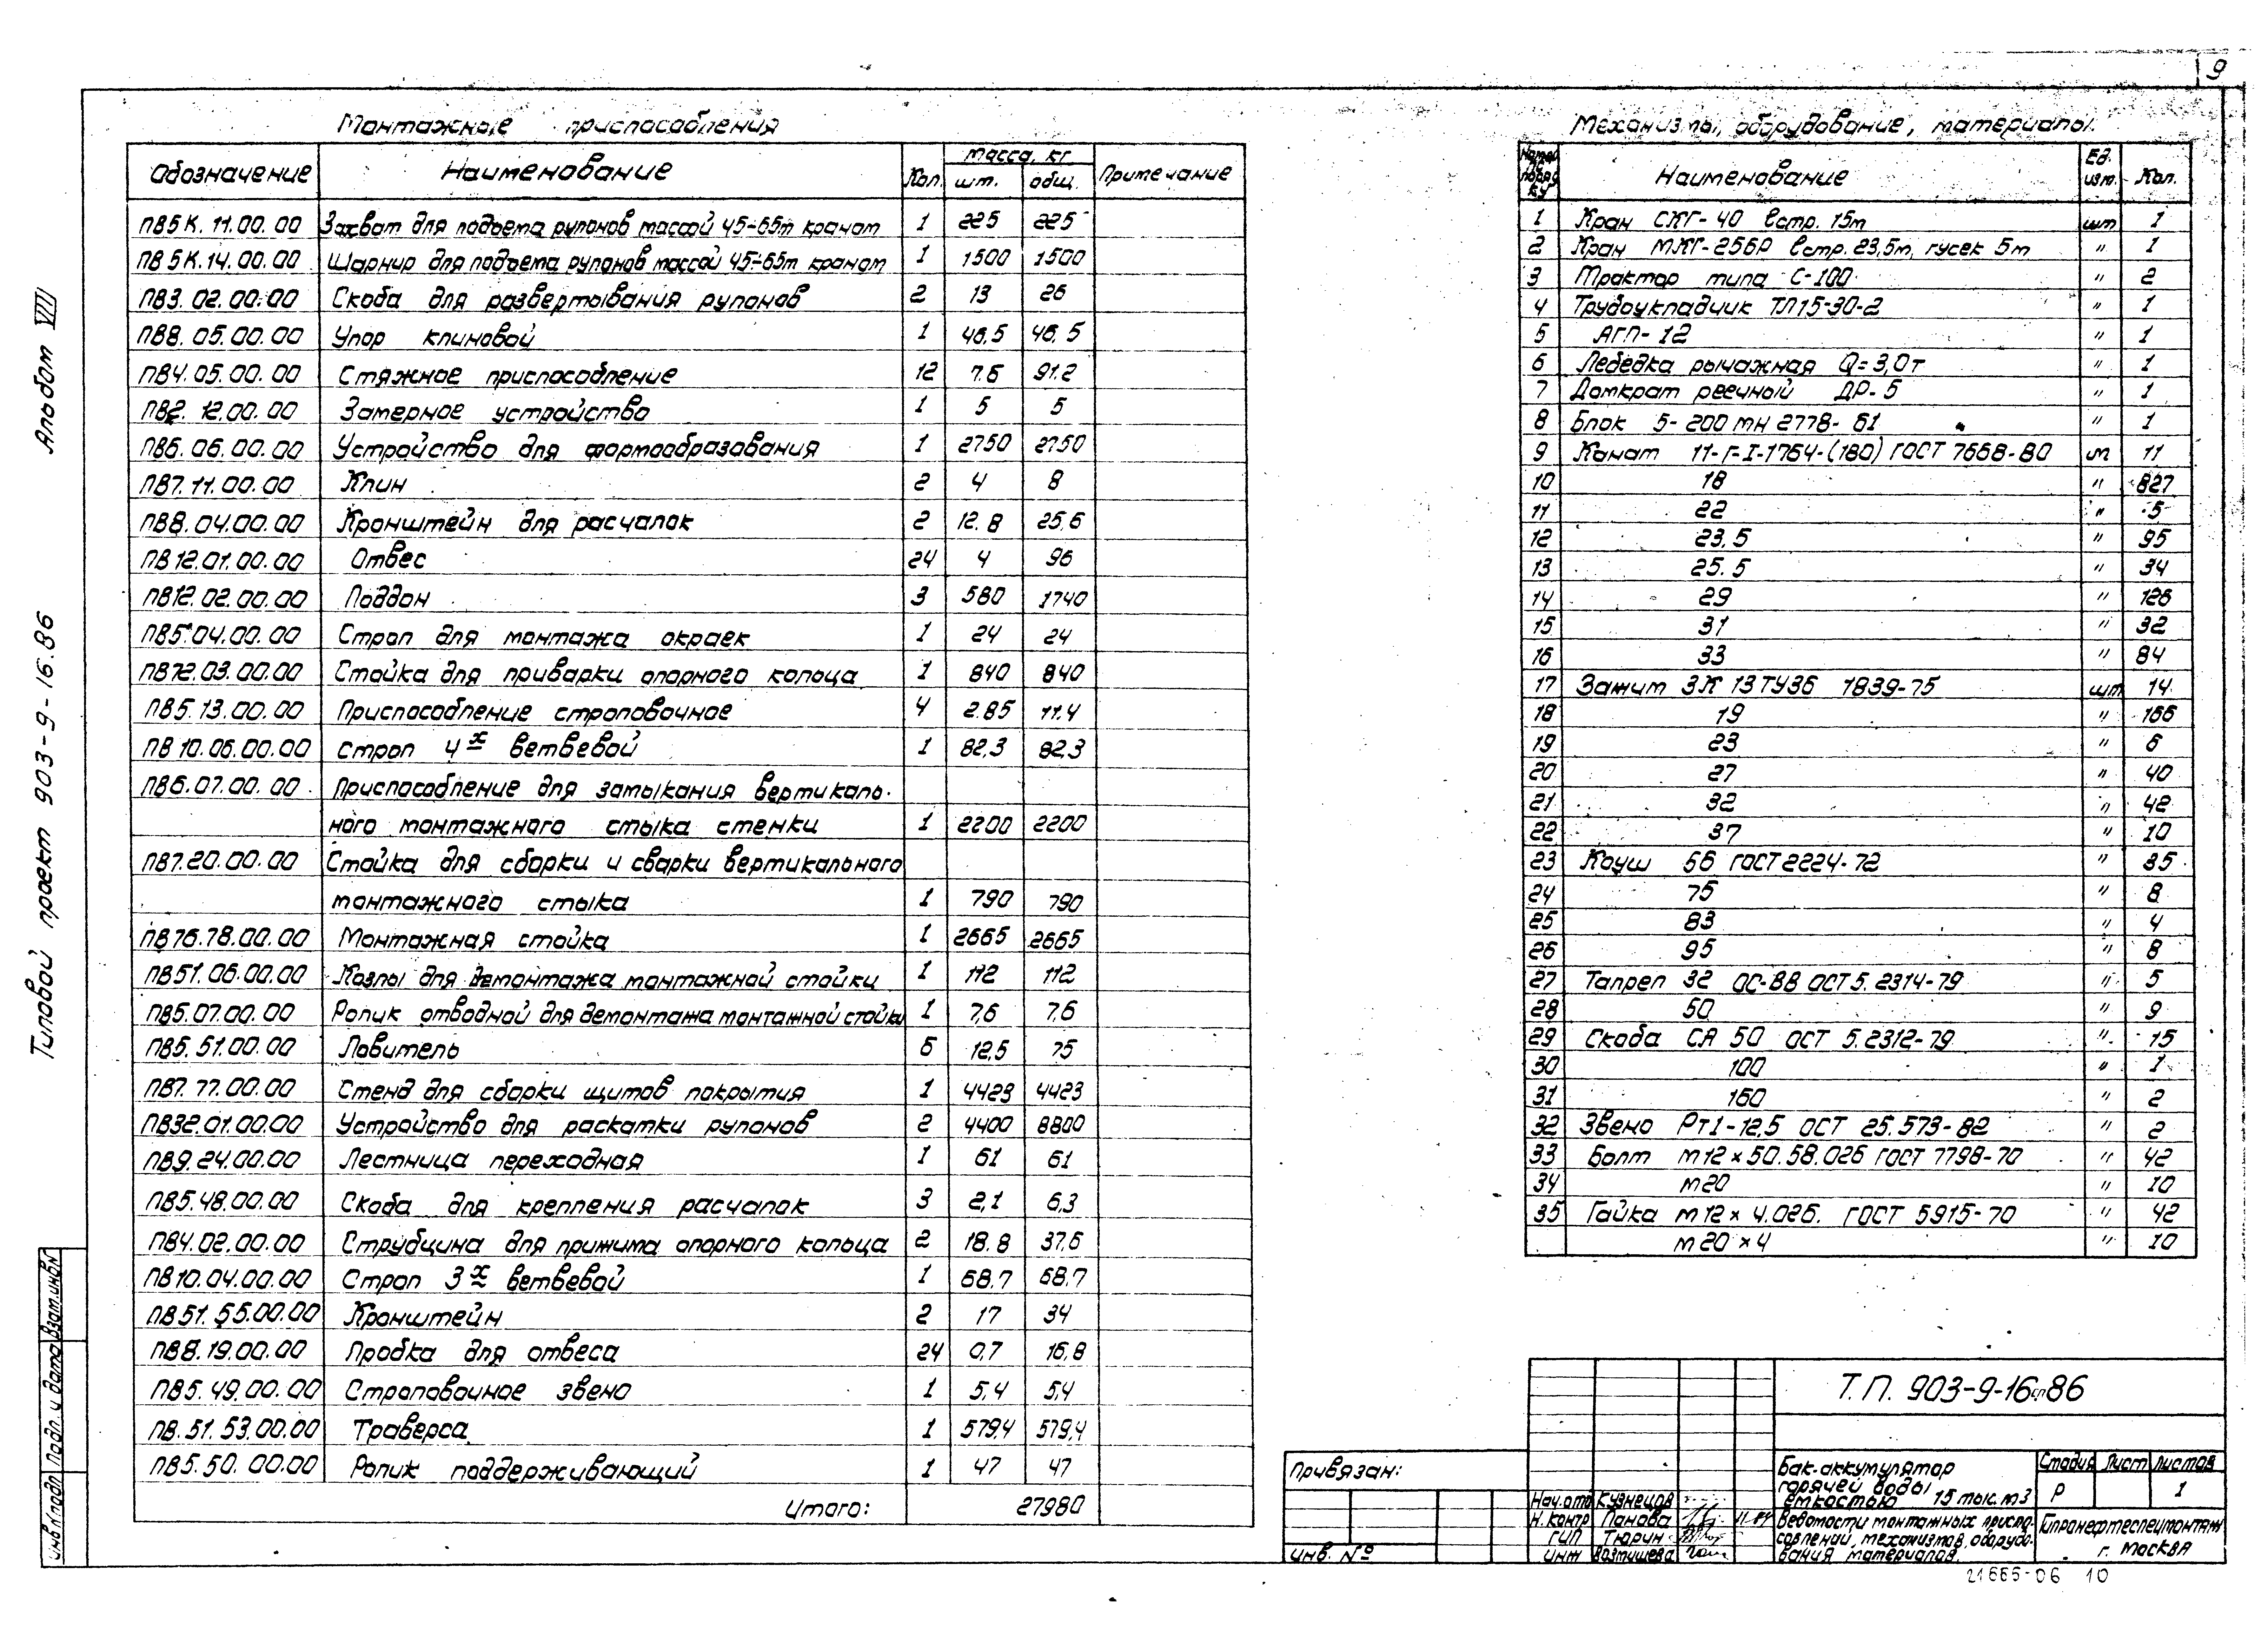 9
Альбом VIII
Типовой проект 903-9-16.86
Монтажные приспособления
Обозначение Наименование Кол. Масса, кг Примечание
шт. общ.
ПВ5К.11.00.00 Захват для подъема рулонов массой 45÷65т краном 1 225 225
ПВ5К.14.00.00 Шарнир для подъема рулонов массой 45÷65т краном 1 1500 1500
ПВ3.02.00.00 Скоба для развертывания рулонов 2 13 26
ПВ8.05.00.00 Упор клиновой 1 46,5 46,5
ПВ4.05.00.00 Стяжное приспособление 12 7.6 91.2
ПВ2.12.00.00 Замерное устройство 1 5 5
ПВ6.06.00.00 Устройство для формообразования 1 2750 2750
ПВ7.11.00.00 Клин 2 4 8
ПВ8.04.00.00 Кронштейн для расчалок 2 12.8 25.6
ПВ12.01.00.00 Отвес 24 4 96
ПВ12.02.00.00 Поддон 3 580 1740
ПВ5.04.00.00 Строп для монтажа окраек 1 24 24
ПВ72.03.00.00 Стойка для приварки опорного кольца 1 840 840
ПВ5.13.00.00 Приспособление строповочное 4 2.85 11.4
ПВ10.06.00.00 строп 4х ветвевой 1 82,3 82,3
ПВ6.07.00.00 Приспособление для замыкания вертикаль-
ного монтажного стыка стенки 1 2200 2200
ПВ7.20.00.00 Стойка для сборки и сварки вертикального
монтажного стыка 1 790 790
ПВ76.78.00.00 Монтажная стойка 1 2665 2665
ПВ51.06.00.00 Козлы для демонтажа монтажной стойки 1 112 112
ПВ5.07.00.00 Ролик отводной для демонтажа монтажной стойки 1 7,6 7,6
ПВ5.51.00.00 Ловитель 6 12,5 75
ПВ7.77.00.00 Стенд для сборки щитов покрытия 1 4423 4423
ПВ32.01.00.00 Устройство для раскатки рулонов 2 4400 8800
ПВ9.24.00.00 Лестница переходная 1 61 61
ПВ5.48.00.00 Скоба для крепления расчалок 3 2,1 6,3
ПВ4.02.00.00 Струбцина для прижима опорного кольца 2 18.8 37,6
ПВ10.04.00.00 Строп 3х ветвевой 1 68.7 68.7
ПВ51.55.00.00 Кронштейн 2 17 34
ПВ8.19.00.00 Пробка для отвеса 24 0,7 16,8
ПВ5.49.00.00 Строповочное звено 1 5,4 5,4
ПВ.51.53.00.00 Траверса 1 579,4 579,4
ПВ5.50.00.00 Ролик поддерживающий 1 47 47
Итого: 27980
Механизмы, оборудование, материалы.
Номер по порядку Наименование Ед. изм. Кол.
1 Кран СКГ-40 Lстр. 15м шт 1
2 Кран МКГ-25бР Lстр. 23,5м, гусек 5м " 1
3 Трактор типа С-100 " 2
4 Трубоукладчик ТЛ15-30-2 " 1
5 АГП-12 " 1
6 Лебедка рычажная Q=3,0т " 1
7 Домкрат реечный ДР-5 " 1
8 Блок 5-200 МН 2778-61 " 1
9 Канат 11-Г-I-1764-(180) ГОСТ 7668-80 м 11
10 18 " 827
11 22 " 5
12 23.5 " 95
13 25.5 " 34
14 29 " 126
15 31 " 32
16 33 " 84
17 Зажим ЗК 13 ТУ36 1839-75 шт 14
18 19 " 166
19 23 " 6
20 27 " 40
21 32 " 42
22 37 " 10
23 Коуш 56 ГОСТ 2224-72 " 85
24 75 " 8
25 83 " 4
26 95 " 8
27 Талреп 32 ОС-ВВ ОСТ 5.2314-79 " 5
28 50 " 9
29 Скоба СА 50 ОСТ 5.2312-79 " 15
30 100 " 1
31 160 " 2
32 Звено Рт1-12,5 ОСТ 25.573-82 " 2
33 Болт М12×50.58.026 ГОСТ 7798-70 " 42
34 М20 " 10
35 Гайка М12×4.026. ГОСТ 5915-70 " 42
М20×4 " 10
Т.П. 903-9-16сп86
Привязан:
Инв. №
Нач.отд Кузнецов
Н.контр Панова 11.84
ГИП Тюрин
инж Возмищева
Бак-аккумулятор
горячей воды
емкостью 15 тыс. м3
Стадия Лист Листов
Р 1
Ведомости монтажных приспо-
соблений, механизмов, оборудо-
вания материалов.
Гипронефтеспецмонтаж
г. Москва
21666-06 10
Инв.№подл. Подп. и дата Взам.инв№